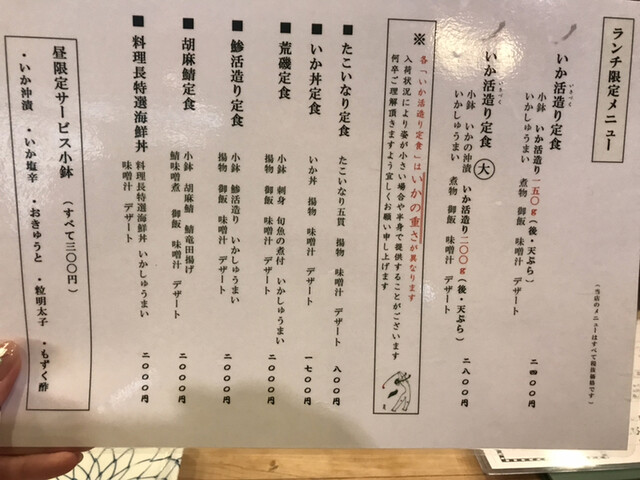 ランチ限定メニュー
(当店のメニューはすべて税抜価格です)
いか活造り定食
いきづく
小鉢 いか活造り一五〇g(後・天ぷら)
いかしゅうまい 煮物 御飯 味噌汁 デザート
二四〇〇円
いか活造り定食 大
いきづく
小鉢 いかの沖漬 いか活造り二〇〇g(後・天ぷら)
いかしゅうまい 煮物 御飯 味噌汁 デザート
二八〇〇円
※
各「いか活造り定食」はいかの重さが異なります
入荷状況により姿が小さい場合や半身で提供することがございます
何卒ご理解頂きますよう宜しくお願い申し上げます
■たこいなり定食
たこいなり五貫 揚物 味噌汁 デザート
八〇〇円
■いか丼定食
いか丼 揚物 味噌汁 デザート
一七〇〇円
■荒磯定食
小鉢 刺身 旬魚の煮付 いかしゅうまい
揚物 御飯 味噌汁 デザート
二〇〇〇円
■鯵活造り定食
小鉢 鯵活造り いかしゅうまい
揚物 御飯 味噌汁 デザート
二〇〇〇円
■胡麻鯖定食
小鉢 胡麻鯖 鯖竜田揚げ
鯖味噌煮 御飯 味噌汁 デザート
二〇〇〇円
■料理長特選海鮮丼
料理長特選海鮮丼 いかしゅうまい
味噌汁 デザート
二〇〇〇円
昼限定サービス小鉢 (すべて三〇〇円)
・いか沖漬 ・いか塩辛 ・おきゅうと ・粒明太子 ・もずく酢